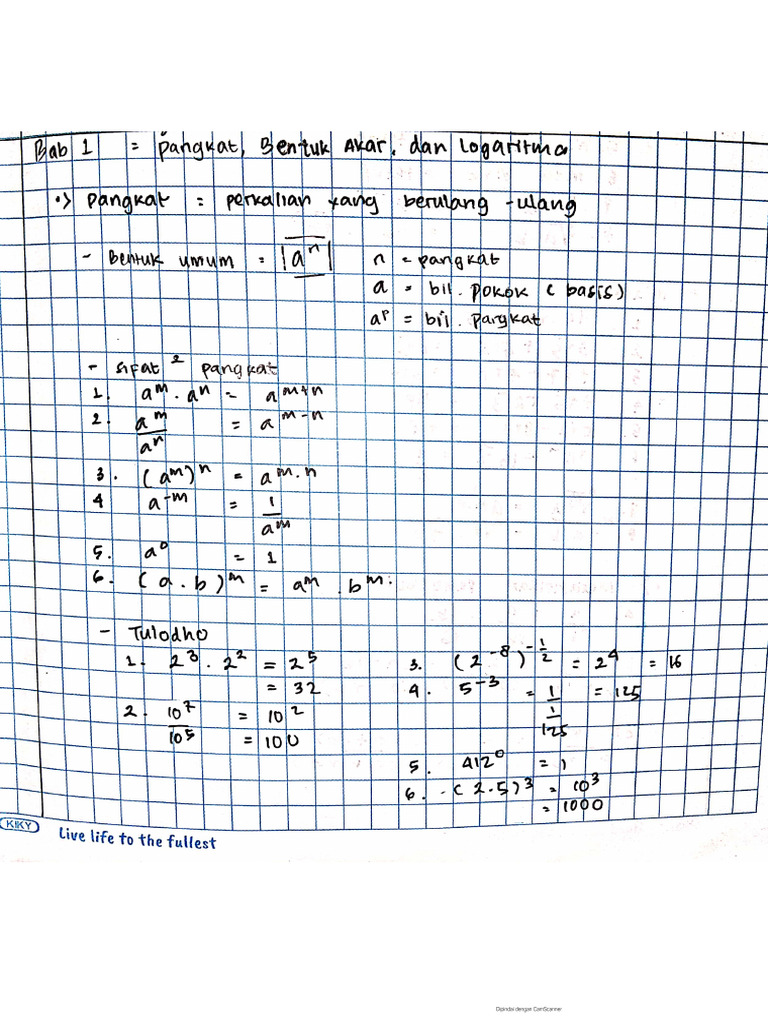 Bab 1 = pangkat, Bentuk Akar, dan Logaritma
•> pangkat = perkalian yang berulang-ulang
- Bentuk umum = |aⁿ| n = pangkat
a = bil. pokok (basis)
aᵖ = bil. pangkat
- sifat² pangkat
1. aᵐ . aⁿ = aᵐ⁺ⁿ
2. aᵐ/aⁿ = aᵐ⁻ⁿ
3. (aᵐ)ⁿ = aᵐ·ⁿ
4 a⁻ᵐ = 1/aᵐ
5. a⁰ = 1
6. (a . b)ᵐ = aᵐ . bᵐ.
- Tulodho
1. 2³ . 2² = 2⁵
= 32
2. 10⁷/10⁵ = 10²
= 100
3. (2⁻⁸)^-1/2 = 2⁴ = 16
4. 5⁻³ = 1/(1/125) = 125
5. 412⁰ = 1
6. (2.5)³ = 10³
= 1000
KIKY Live life to the fullest
Dipindai dengan CamScanner